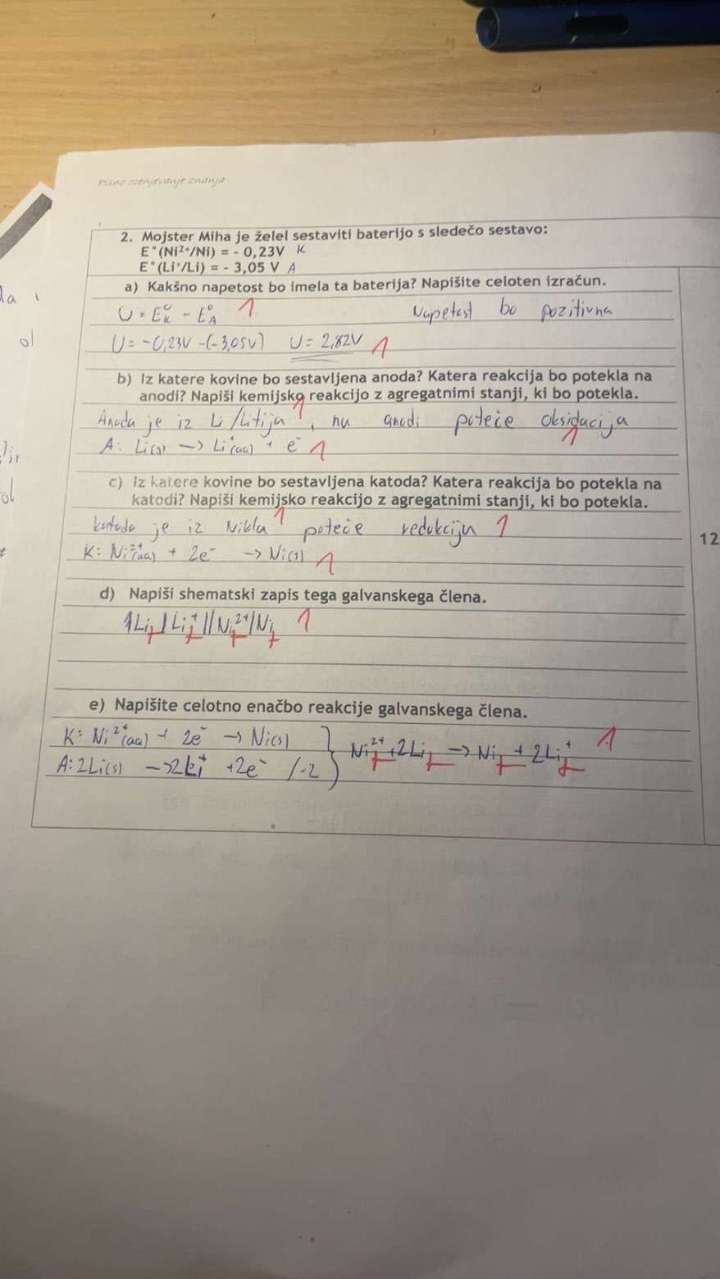 Pisno ocenjevanje znanja
2. Mojster Miha je želel sestaviti baterijo s sledečo sestavo:
E°(Ni²⁺/Ni) = - 0,23V K
E°(Li⁺/Li) = - 3,05 V A
a) Kakšno napetost bo imela ta baterija? Napišite celoten izračun.
U = E°K - E°A 1 Napetost bo pozitivna
U = -0,23V -(-3,05V) U = 2,82V 1
b) Iz katere kovine bo sestavljena anoda? Katera reakcija bo potekla na
anodi? Napiši kemijsko reakcijo z agregatnimi stanji, ki bo potekla.
Anoda je iz Li/Litija 1, na anodi poteče oksidacija 1
A: Li(s) → Li⁺(aq) + e⁻ 1
c) Iz katere kovine bo sestavljena katoda? Katera reakcija bo potekla na
katodi? Napiši kemijsko reakcijo z agregatnimi stanji, ki bo potekla.
katoda je iz Nikla 1 poteče redukcija 1
K: Ni²⁺(aq) + 2e⁻ → Ni(s) 1
12
d) Napiši shematski zapis tega galvanskega člena.
Li | Li⁺ || Ni²⁺ | Ni 1
e) Napišite celotno enačbo reakcije galvanskega člena.
K: Ni²⁺(aq) + 2e⁻ → Ni(s)
A: 2Li(s) → 2Li⁺ + 2e⁻ /·2
Ni²⁺ + 2Li → Ni + 2Li⁺ 1